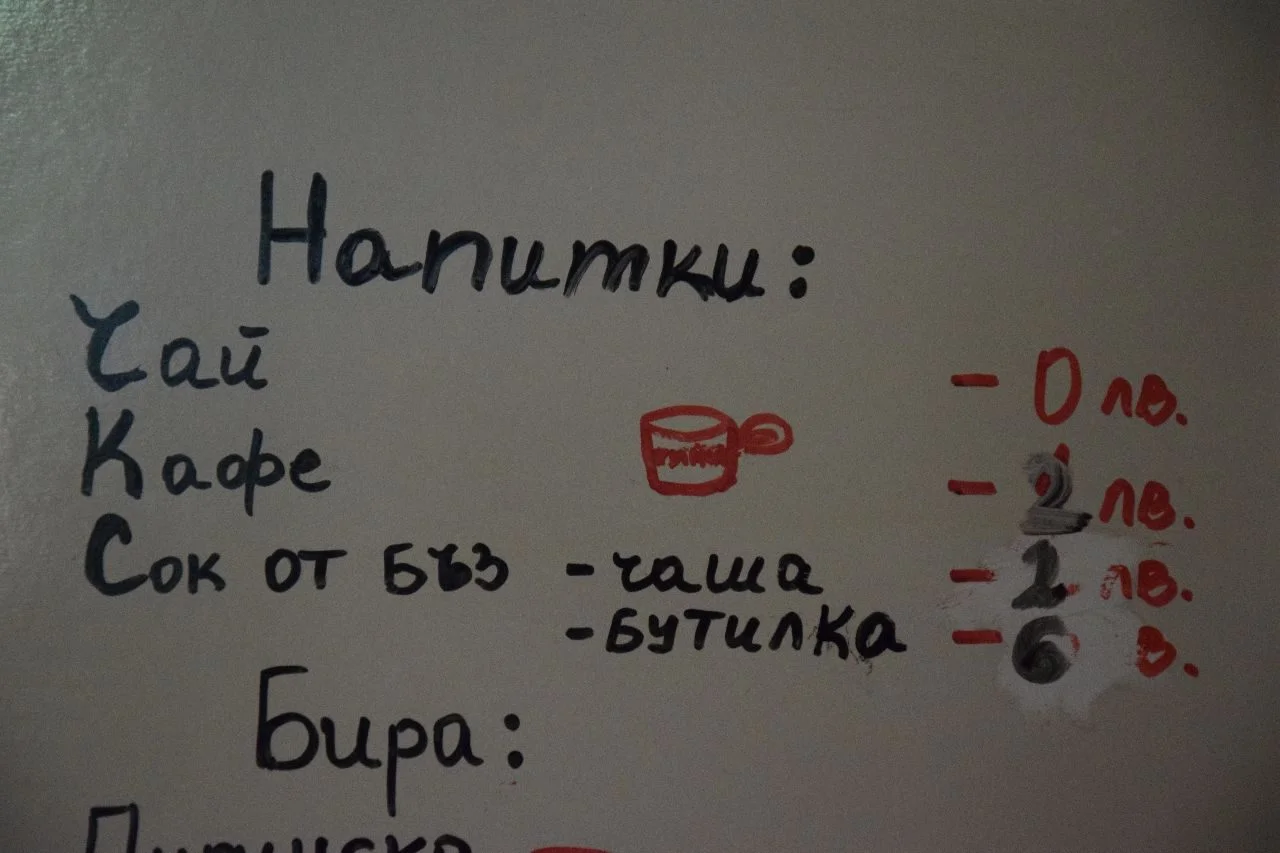 Напитки:
Чай - 0 лв.
Кафе - 2 лв.
Сок от бъз - чаша - 2 лв.
- бутилка - 6 в.
Бира: